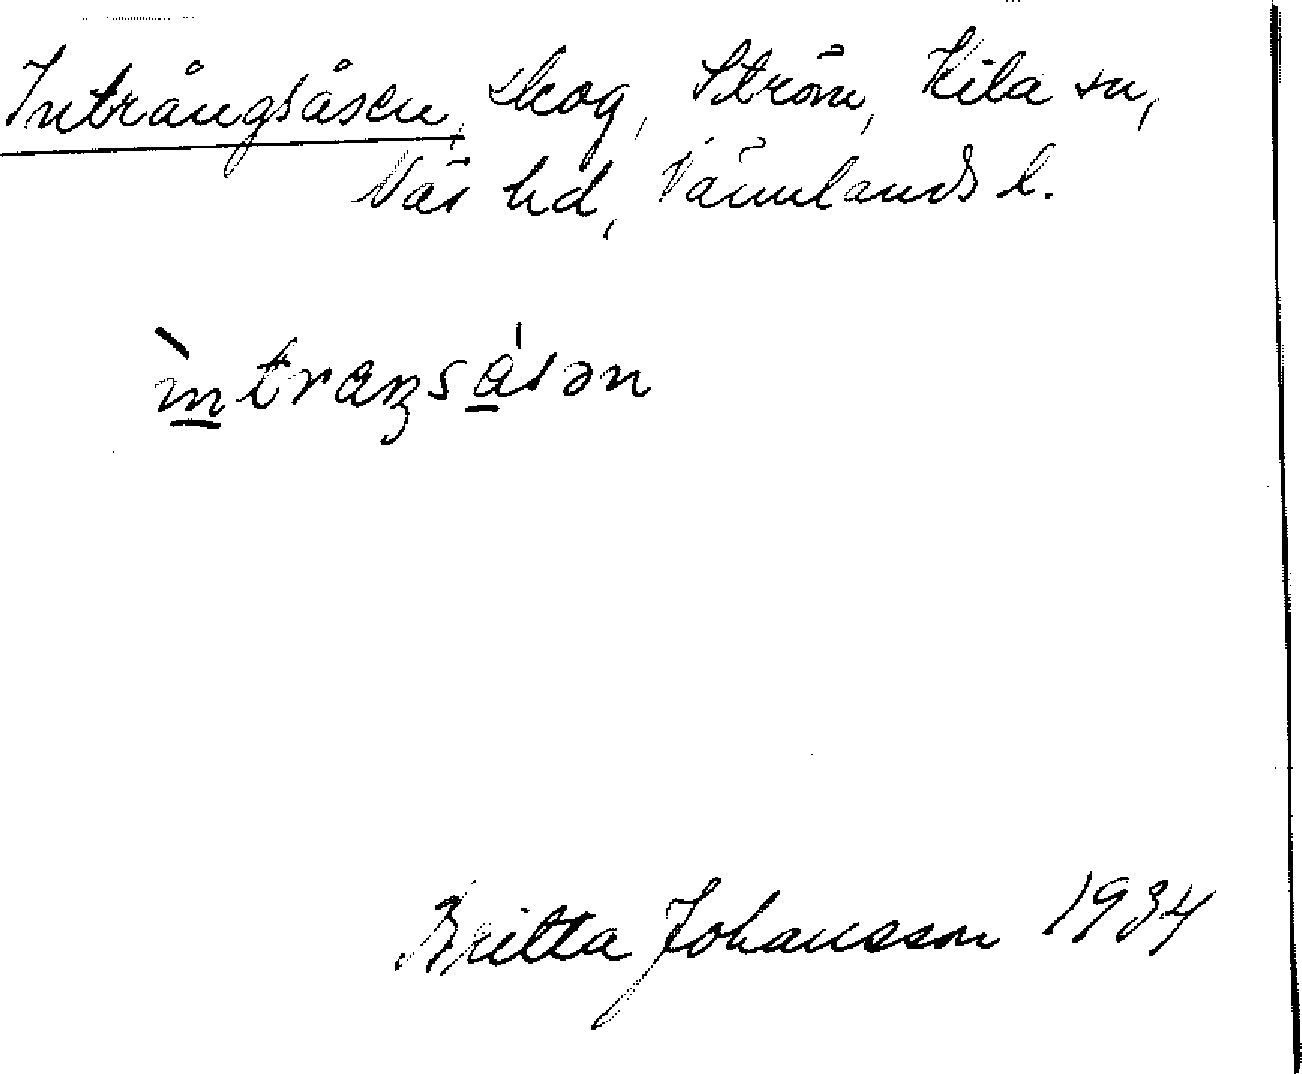 Intrångsåsen, skog, Ström, Kila sn,
Näs hd, Värmlands l.
ìntraŋsásən
Britta Johansson 1934